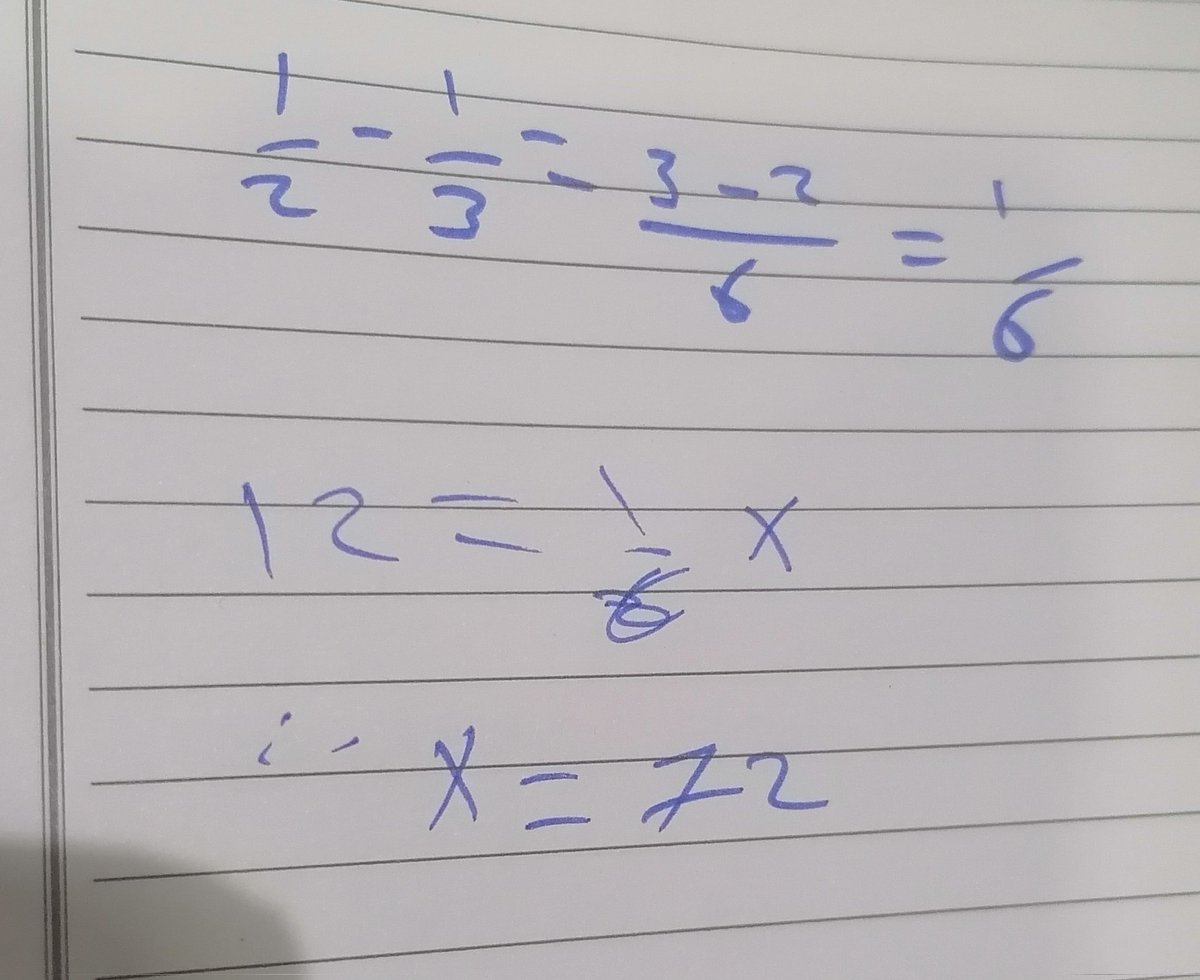 1/2 - 1/3 = (3-2)/6 = 1/6
12 = 1/6 x
∴ x = 72